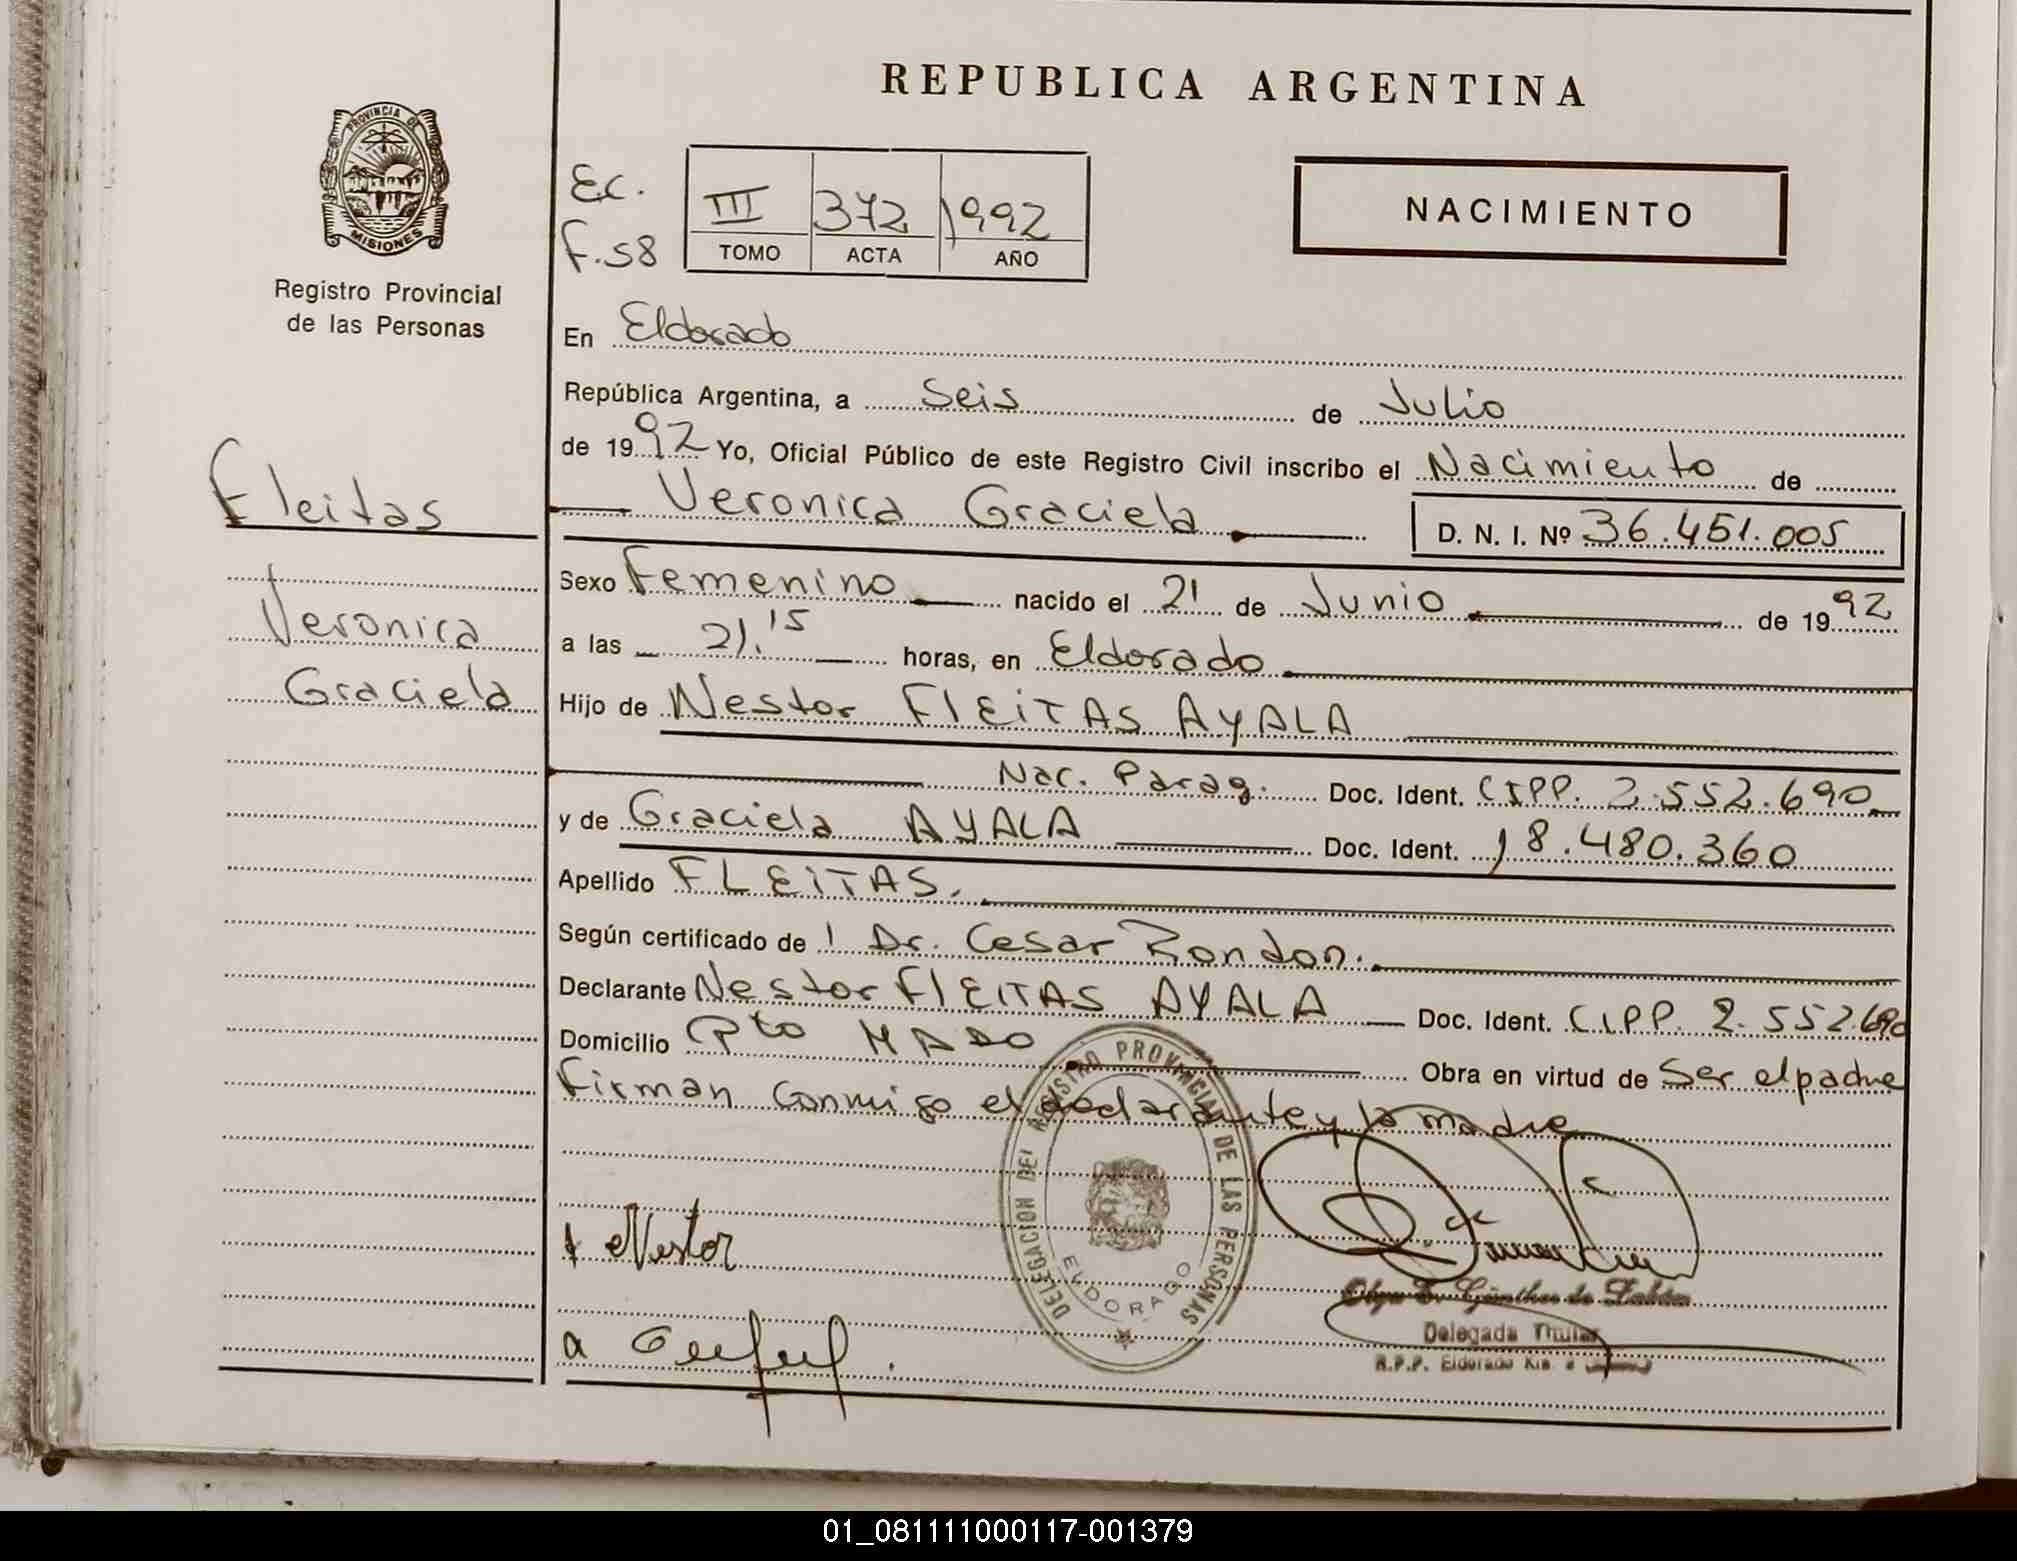 REPUBLICA ARGENTINA
PROVINCIA DE
MISIONES
Registro Provincial
de las Personas
E.C.
F.58
III 372 1992
TOMO ACTA AÑO
NACIMIENTO
En Eldorado
República Argentina, a Seis de Julio
de 1992 Yo, Oficial Público de este Registro Civil inscribo el Nacimiento de
Veronica Graciela D. N. I. Nº 36.451.005
Fleitas
Veronica
Graciela
Sexo Femenino nacido el 21 de Junio de 1992
a las 21.15 horas, en Eldorado
Hijo de Nestor FlEiTAS AYALA
Nac. Parag. Doc. Ident. CIPP. 2.552.690
y de Graciela AYALA Doc. Ident. 18.480.360
Apellido FLEiTAS.
Según certificado de Dr. Cesar Rondon.
Declarante Nestor FlEITAS AYALA Doc. Ident. C.I.P.P. 2.552.690
Domicilio Pto MADO Obra en virtud de Ser el padre
Firman conmigo el declarante y la madre
DELEGACION DEL REGISTRO PROVINCIAL DE LAS PERSONAS
ELDORADO
Nestor
Delegada Titular
R.P.P. Eldorado Km.
01_081111000117-001379